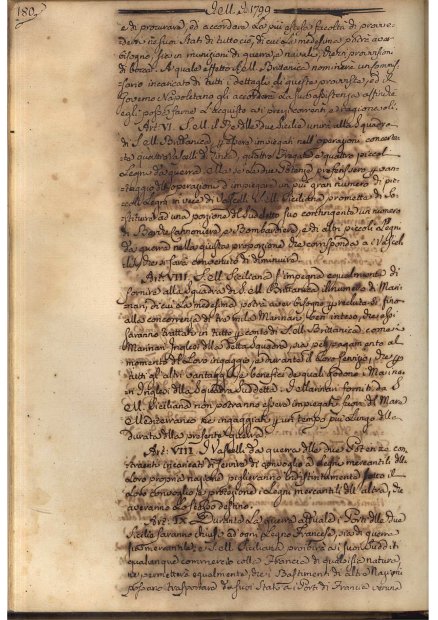 180.
Dell' A. 1799
e di procurare, ed accordare la più estesa facoltà di provve=
dere ne' suoi Stati di tutto ciò, di cui la medesima potrà aver
bisogno, sia in munizioni di guerra e navali, che in provvisioni
di bocca. A quale effetto S. M. Britanica nominerà un Commis=
sario incaricato di tutti i dettagli di queste provviste, ed il
Governo Napoletano gli accorderà la sua assistenza affinchè
egli possa farne l'acquisto a' prezzi correnti e ragionevoli.
Art. VI. S. M. il Re delle due Sicilie unirà alla Squadra
di S. M. Brittanica per essere impiegati nell' operazioni concerta=
te quattro Vascelli di linea, quattro Fregate e quattro piccoli
Legni da guerra. Ma se le due Potenze
dell' operazioni d' impiegare un più gran numero di pic=
coli Legni in vece di Vascelli, S. M. Siciliana promette di So=
stituire ad una porzione del suddetto suo contingente un numero
di Scialuppe cannoniere, e Bombardiere, e di altri piccoli Legni
da guerra nella giusta proporzione, che corrisponda a' Vascel=
li, che si sarà convenuto di diminuire.
Art. VII. S. M. Siciliana s' impegna egualmente di
fornire alla Squadra di S. M. Brittanica il numero di Mari=
nari, di cui la medesima potrà aver bisogno per recluta di fino
alla concorrenza di tre mila Marinari; ben inteso, che essi
saranno trattati in tutto per conto di S. M. Brittanica, come i
Marinari Inglesi della detta Squadra, sia pel pagamento al
momento del loro ingaggio, e durante il loro servizio, che per
tutti gli altri vantaggi e benefici de' quali godono i Marinari
Inglesi della Squadra suddetta. I Marinari forniti da S.
M. Siciliana non potranno essere impiegati fuori del Mare
Mediterraneo nè ingaggiati per un tempo più lungo della
durata della presente guerra.
Art. VIII. I Vascelli da guerra delle due Potenze con=
traenti incaricati di servire di convoglio a' Legni mercantili della
loro propria nazione piglieranno indistintamente sotto il
loro convoglio e protezione i Legni mercantili dell' altra, che
averanno lo stesso destino.
Art. IX. Durante la guerra attuale i Porti delle due
Sicilie saranno chiusi ad ogni Legno Francese, sia di guerra
sia mercantile, e S. M. Siciliana proibirà a' suoi Sudditi
qualunque commercio colla Francia di qualsisia natura,
nè permetterà egualmente, che i Bastimenti di altre Nazioni
possano trasportare da' suoi Stati a' Porti di Francia veruna